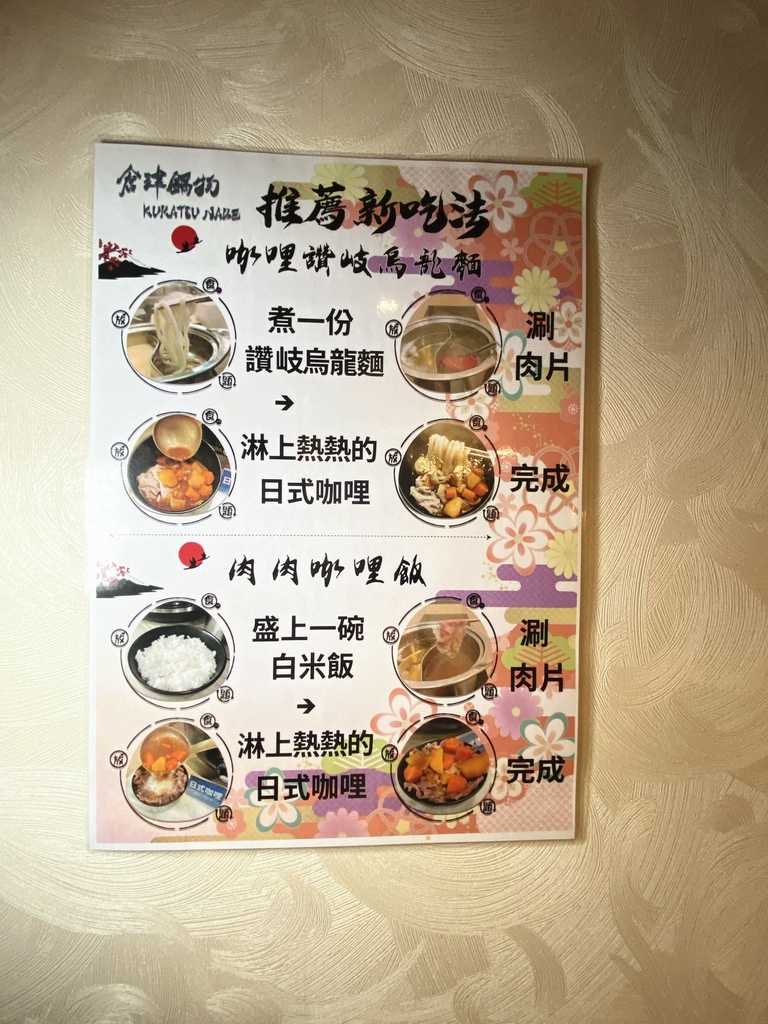 倉津鍋物
KURATSU NABE
推薦新吃法
咖哩讚岐烏龍麵
煮一份
讚岐烏龍麵
涮
肉片
淋上熱熱的
日式咖哩
完成
肉肉咖哩飯
盛上一碗
白米飯
涮
肉片
淋上熱熱的
日式咖哩
日式咖哩
完成